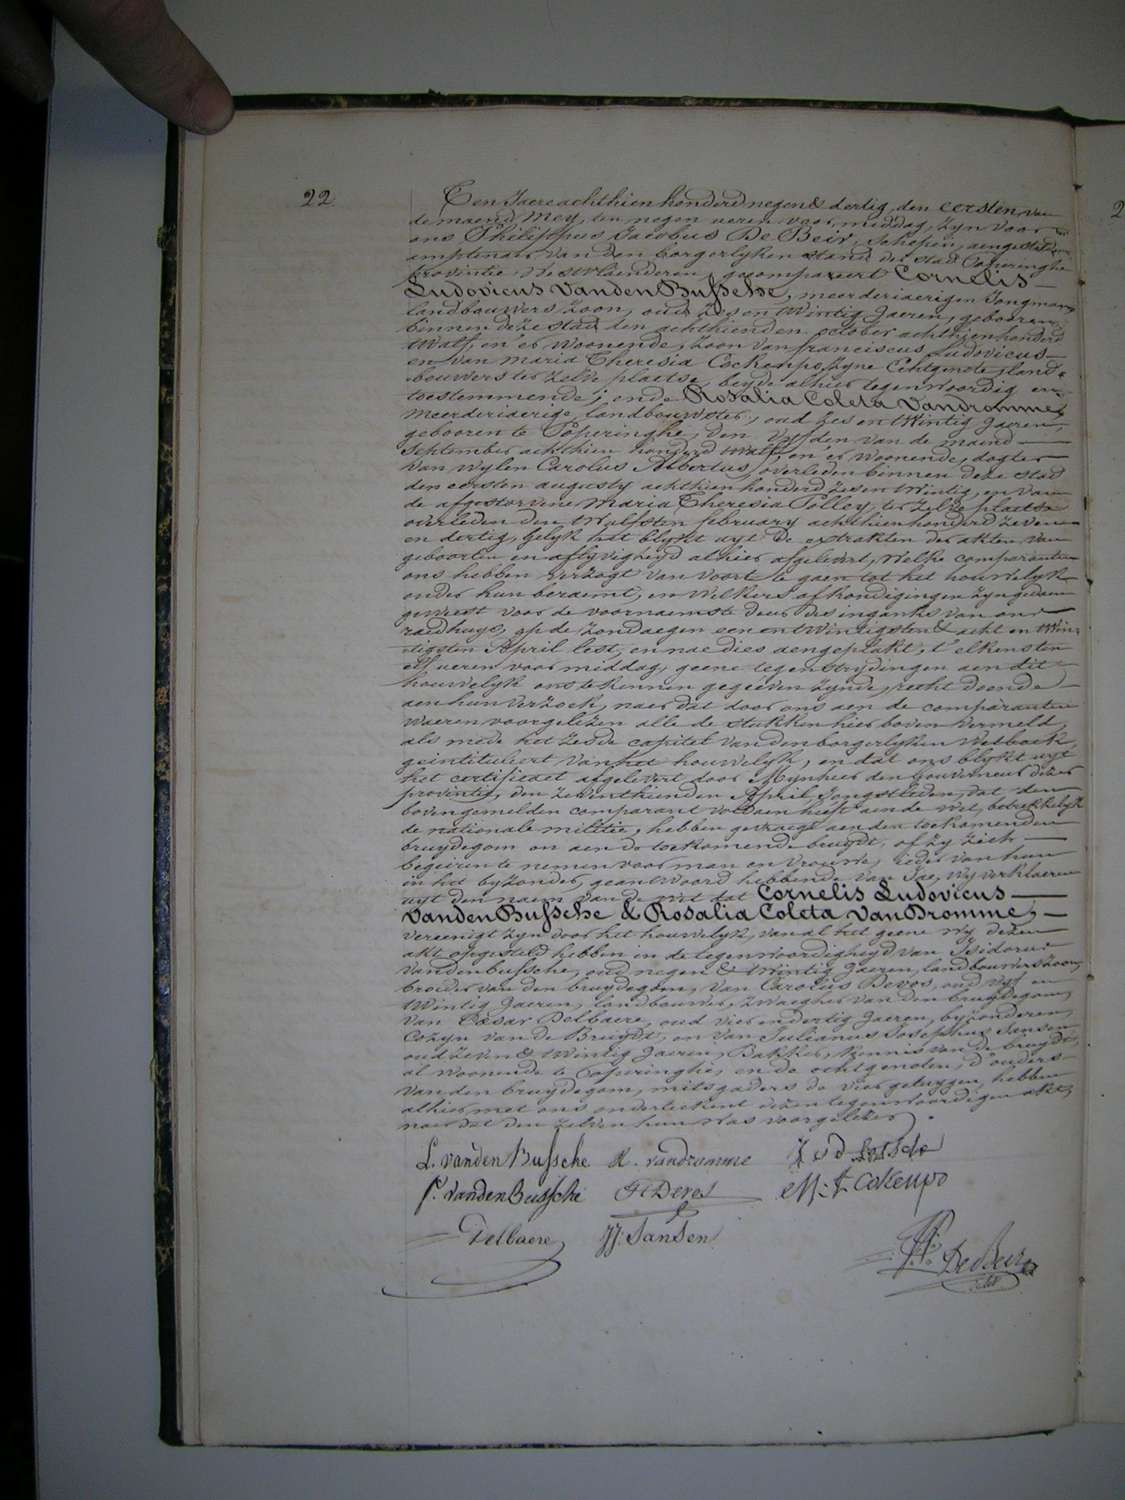 22
Ten Jaere achthien honderd negen & dertig, den eersten van
de maend Mey, ten negen ueren voor middag, zyn voor
ons Philippus Jacobus De Beir, Schepen, aengesteld
amptenaer van den borgerlyken stand der stad Poperinghe
provintie Westvlienderen, gecompareert Cornelis
Ludovicus VandenBussche, meerderjaerigen Jongman,
landbouwers zoon, oud zes en twintig Jaeren, gebooren
binnen deze stad den achthienden october achthien honderd
twalf, en er woonende, zoon van franciscus Ludovicus
en van Maria Theresia Cockempo, zyne Echtgenote, land-
bouwers ter zelve plaetse, beyde alhier tegenwoordig en
toestemmende; ende Rosalia Coleta Vandromme,
meerderjaerige, landbouwster, oud zes en twintig Jaeren,
gebooren te Poperinghe, den vyfden van de maend
September achthien honderd twalf, en er woonende, dogter
van wylen Carolus Albertus, overleden binnen deze stad
den eersten augusty achthien honderd zes en twintig, en van
de afgestorvene Maria Theresia Tolley, ter zelve plaetse
overleden den twalfsten february achthien honderd zeven
en dertig, gelyk het blykt uyt de extrakten der akten van
geboorten en aflyvigheyd alhier afgelevert, welke comparanten
ons hebben verzogt van voort te gaen tot het houwelyk
onder hun beraemt, en welkers afkondigingen zyn gedaen
geweest voor de voornaemste deur des inganks van ons
raedhuys, op de zondaegen een en twintigsten & acht en twin-
tigsten April lest, en nae dies aengeplakt, t'elkens ten
elf ueren voor middag, geene tegenstrydingen aen dit
houwelyk ons te kennen gegeeven zynde, recht doende
aen hun verzoek, naer dat door ons aen de comparanten
waeren voorgelezen alle de stukken hier boven vermeld,
als mede het zesde capitel van den borgerlyken Wetboek,
geintituleert van het houwelyk, en dat ons blykt uyt
het certificaet afgelevert door Mynheer den Gouverneur dezer
provintie, den zeventhienden April Jongstleden, dat den
bovengemelden comparant voldaen heeft aen de wet, betrekkelyk
de nationale militie, hebben gevraegt aen den toekomenden
bruydegom en aen de toekomende bruydt, of zy zich
begeiren te nemen voor man en vrouwe, ieder van hun
in het byzonder, geantwoord hebbende van Jae, wy verklaeren
uyt den naem van de wet dat Cornelis Ludovicus
VandenBussche & Rosalia Coleta VanDromme,
vereenigt zyn door het houwelyk, van al het geene wy dezen
akt opgesteld hebben in de tegenwoordigheyd van Isidorus
Vandenbussche, oud negen & twintig Jaeren, landbouwers zoon,
broeder van den bruydegom, van Carolus Devos, oud vyf en
twintig Jaeren, landbouwer, zwaegher van den bruydegom,
van Cæsar Delbaere, oud vier en dertig Jaeren, byzonderen,
Cozyn van de Bruydt, en van Julianus Josephus Sansen
oud zeven & twintig Jaeren, Bakker, kennis van de bruydt,
al woonende te Poperinghe, en de echtgenoten, d'ouders
van den bruydegom, mitsgaders de vier getuygen, hebben
alhier met ons onderteekent dezen tegenwoordigen akt,
naer dat den zelven hun was voorgelezen.
L. vandenBussche R. vandromme
P. VandenBussche M: T. Cokenpo
Delbaere JJ. Sansen
DeBeir